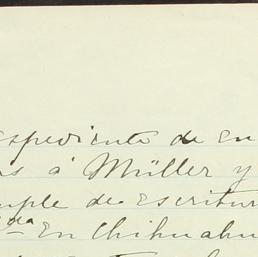 expediente de en
as á Müller y
mple de escritur
da En Chihuahu